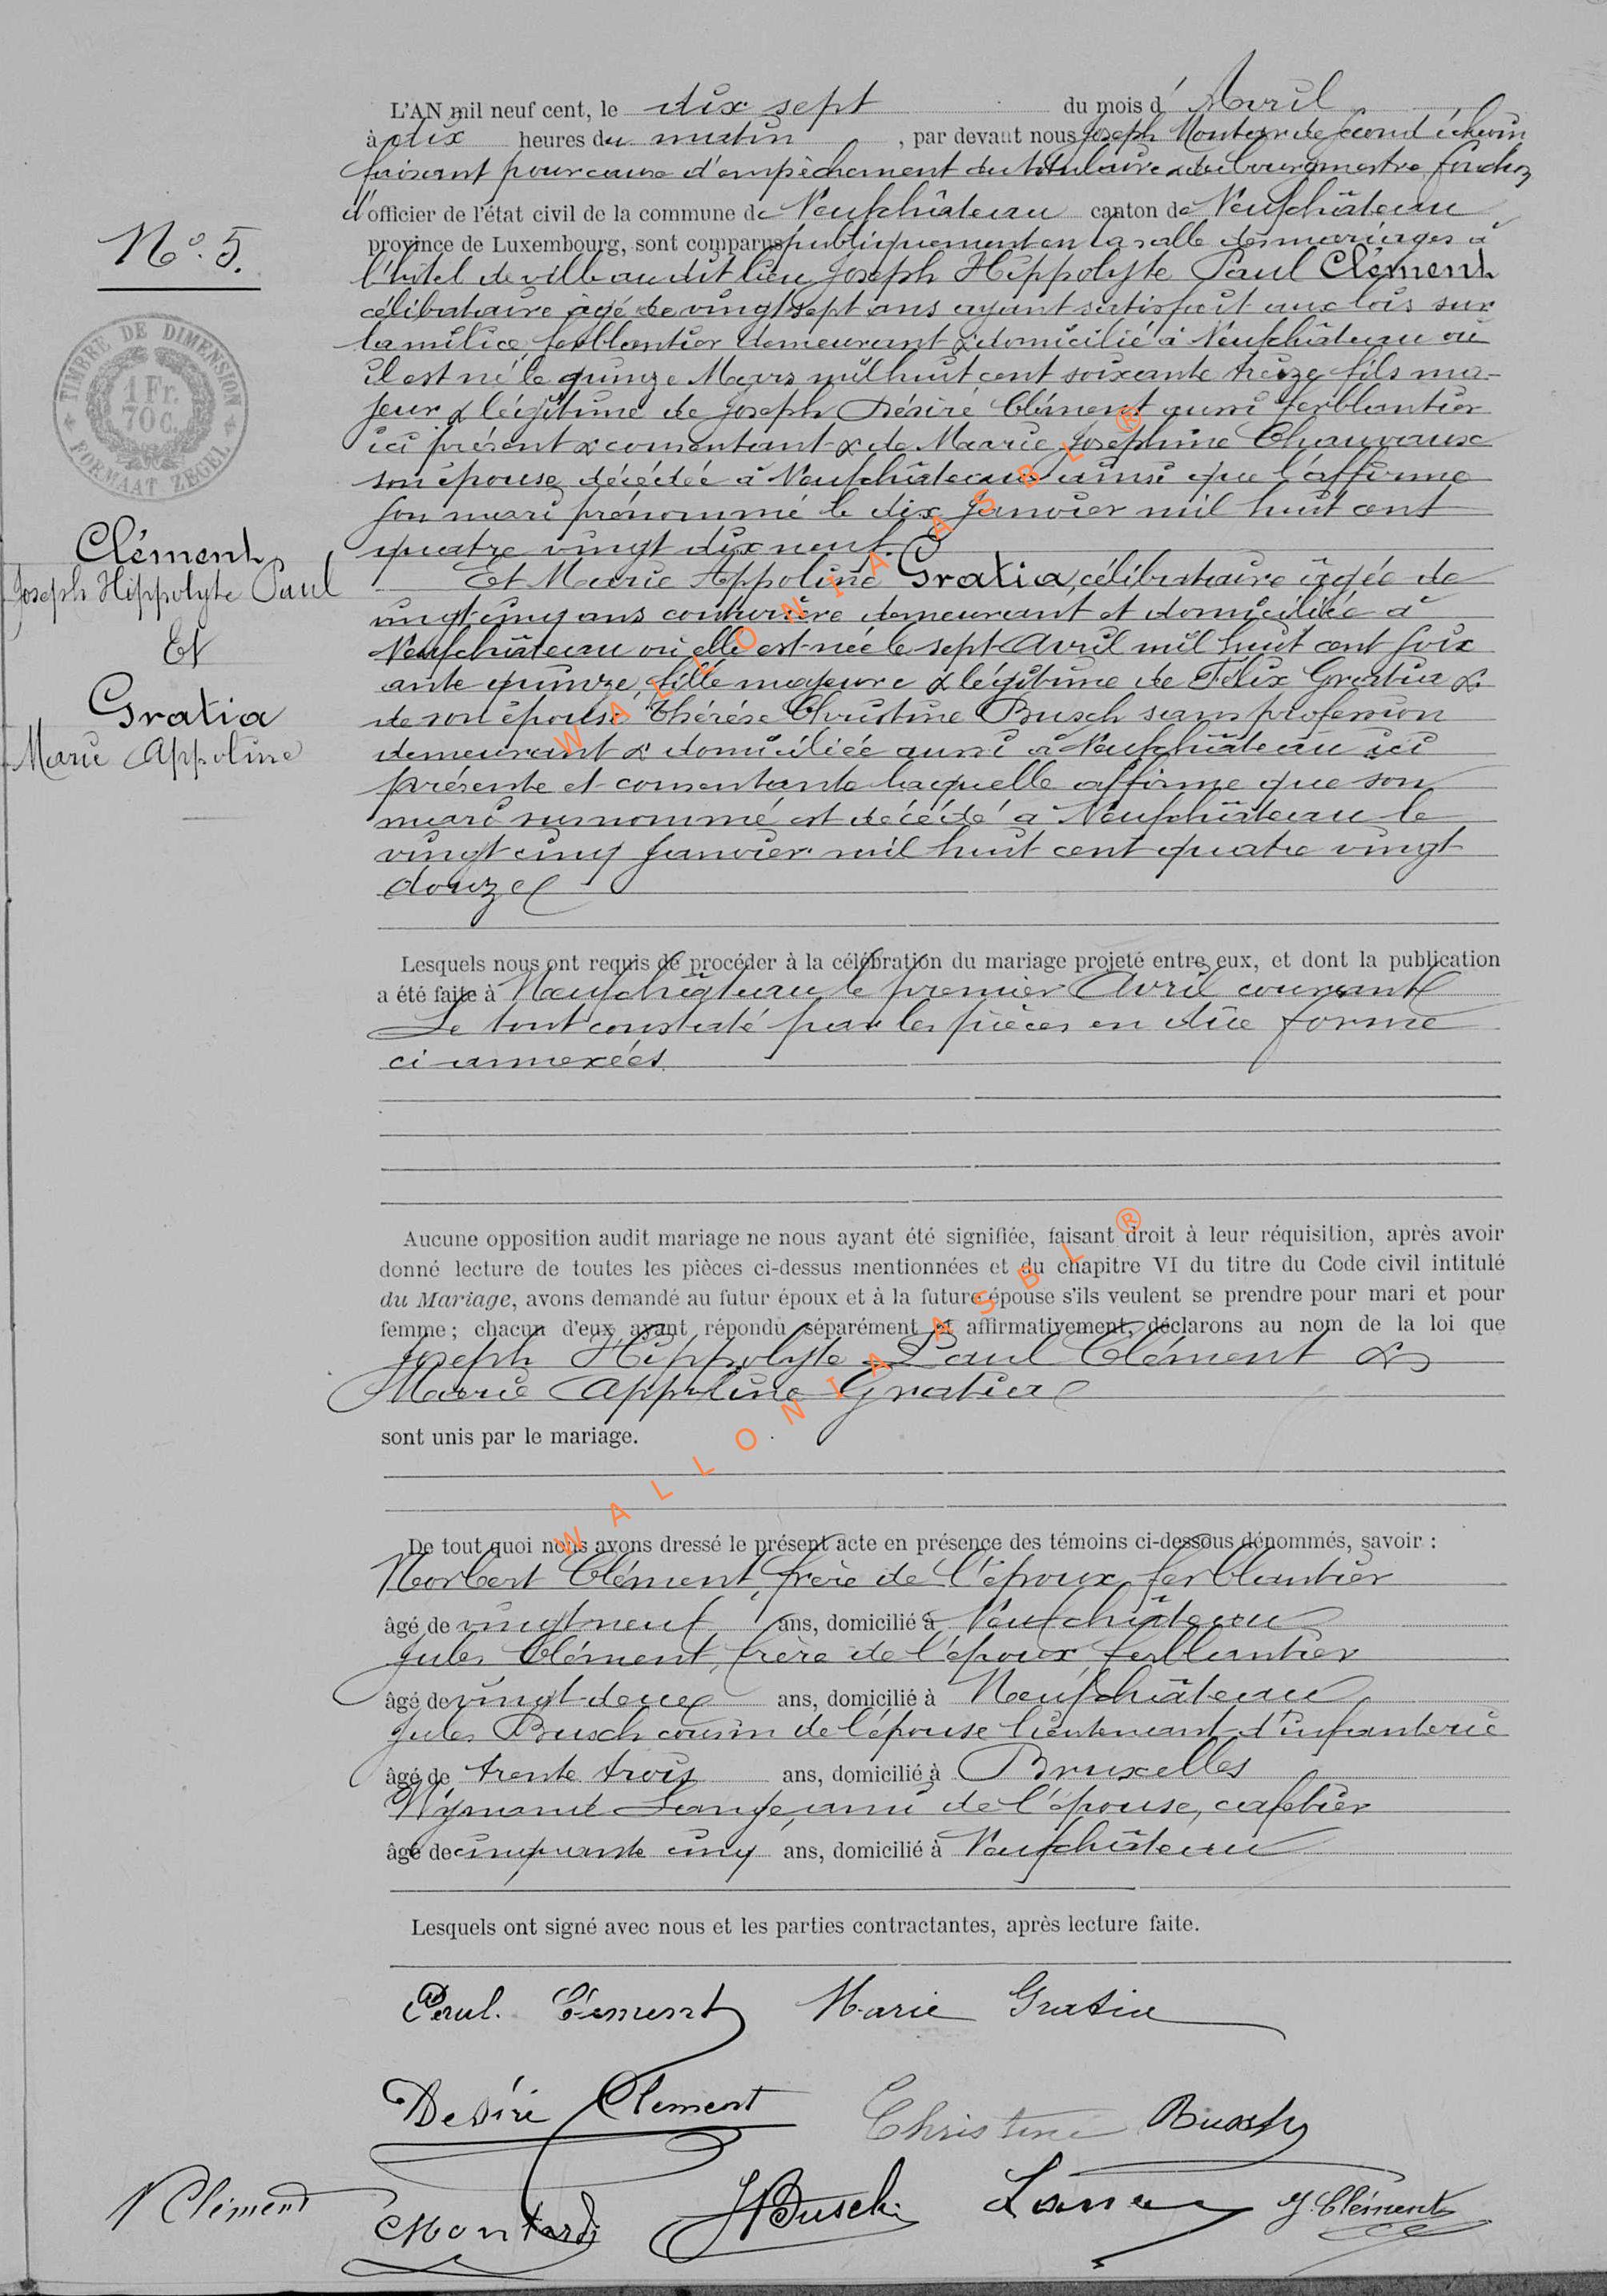 L'AN mil neuf cent, le dix sept du mois d' Avril
à dix heures du matin, par devant nous Joseph second échevin
faisant pour cause d'empêchement du titulaire du bourgmestre fonctions
d'officier de l'état civil de la commune de Neufchâteau canton de Neufchâteau
province de Luxembourg, sont comparus publiquement en la salle des mariages à
l'hôtel de ville au dit lieu Joseph Hippolyte Paul Clément
célibataire âgé de vingt sept ans ayant satisfait aux lois sur
la milice, ferblantier demeurant & domicilié à Neufchâteau où
il est né le quinze Mars mil huit cent soixante treize fils ma-
jeur & légitime de Joseph Désiré Clément aussi ferblantier
ici présent & consentant & de Marie Joséphine Chauvaux
son épouse, décédée à Neufchâteau ainsi que l'affirme
son mari prénommé le dix Janvier mil huit cent
quatre vingt dix neuf.
Et Marie Appoline Gratia, célibataire âgée de
vingt cinq ans couturière demeurant et domiciliée à
Neufchâteau où elle est née le sept Avril mil huit cent soix
ante quinze, fille majeure & légitime de Félix Gratia &
de son épouse Thérèse Christine Busch sans profession
demeurant & domiciliée aussi à Neufchâteau ici
présente et consentante laquelle affirme que son
mari surnommé est décédé à Neufchâteau le
vingt cinq Janvier mil huit cent quatre vingt
douze
Lesquels nous ont requis de procéder à la célébration du mariage projeté entre eux, et dont la publication
a été faite à Neufchâteau le premier Avril courant
Le tout constaté par les pièces en due forme
ci annexées
Aucune opposition audit mariage ne nous ayant été signifiée, faisant droit à leur réquisition, après avoir
donné lecture de toutes les pièces ci-dessus mentionnées et du chapitre VI du titre du Code civil intitulé
du Mariage, avons demandé au futur époux et à la future épouse s'ils veulent se prendre pour mari et pour
femme ; chacun d'eux ayant répondu séparément et affirmativement, déclarons au nom de la loi que
Joseph Hippolyte Paul Clément &
Marie Appoline Gratia
sont unis par le mariage.
De tout quoi nous avons dressé le présent acte en présence des témoins ci-dessous dénommés, savoir :
Norbert Clément, frère de l'époux, ferblantier
âgé de vingt neuf ans, domicilié à Neufchâteau
Jules Clément, frère de l'époux, ferblantier
âgé de vingt deux ans, domicilié à Neufchâteau
Jules Busch cousin de l'épouse lieutenant d'infanterie
âgé de trente trois ans, domicilié à Bruxelles
Wynand Lange, ami de l'épouse, cafetier
âgé de cinquante cinq ans, domicilié à Neufchâteau
Lesquels ont signé avec nous et les parties contractantes, après lecture faite.
Paul. Clément Marie Gratia
Désiré Clement Christine Busch
N Clément JBusch J. Clément
N°. 5.
TIMBRE DE DIMENSION
1 Fr.
70 c.
FORMAAT ZEGEL
Clément
Joseph Hippolyte Paul
Et
Gratia
Marie Appoline
WALLONIA ASBL ®
WALLONIA ASBL ®